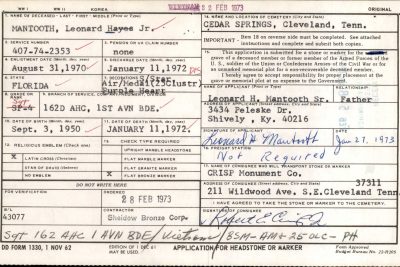 WW I WW II KOREA VIETNAM 28 FEB 1973 ORIGINAL
NAME OF DECEASED - LAST - FIRST - MIDDLE (Print or Type)
MANTOOTH, Leonard Hayes Jr.
NAME AND LOCATION OF CEMETERY (City and State)
CEDAR SPRINGS, Cleveland, Tenn.
SERVICE NO.
407-74-2353
PENSION OR VA CLAIM NUMBER
none
IMPORTANT: Item 18 on reverse side must be completed. See attached
instructions and complete and submit both copies.
August 31, 1970
January 11, 1972
This application is submitted for a stone or marker for the
grave of a deceased member or former member of the Armed Forces of the
U.S., soldier of the Union or Confederate Armies of the Civil War or for
an unmarked memorial for a non-recoverable deceased member.
I hereby agree to accept responsibility for proper placement at the
grave or memorial plot at no expense to the Government.
STATE
FLORIDA
B/Star
Air/Medal 25Clustr
Purple Heart
SGT
SP-4 162D AHC, 1ST AVN BDE,
Leonard H. Mantooth Sr. Father
3434 Peleske Dr.
Shively, Ky. 40216
DATE OF BIRTH (Month, Day, Year)
Sept. 3, 1950
DATE OF DEATH (Month, Day, Year)
JANUARY 11, 1972.
SIGNATURE OF APPLICANT DATE
Leonard H. Mantooth Jan 27, 1973
RELIGIOUS EMBLEM (Check one)
CHECK TYPE REQUIRED
FREIGHT STATION
Not Required
LATIN CROSS (Christian)
STAR OF DAVID (Hebrew)
NO EMBLEM
UPRIGHT MARBLE HEADSTONE
FLAT MARBLE MARKER
FLAT GRANITE MARKER
FLAT BRONZE MARKER
CRISP Monument Co.
37311
211 Wildwood Ave, S.E. Cleveland Tenn.
DO NOT WRITE HERE
FOR VERIFICATION
ORDERED
28 FEB 1973
I HAVE AGREED TO TAKE THE STONE OR MARKER TO THE CEMETERY.
SIGNATURE OF CONSIGNEE
43077
Sheidow Bronze Corp.
SGT 162 AHC 1 AVN BDE/Vietnam/BSM-AM & 25 OLC-PH
DD FORM 1330, 1 NOV 62 EDITION OF 1 DEC 61 APPLICATION FOR HEADSTONE OR MARKER
Form Approved
Budget Bureau No.